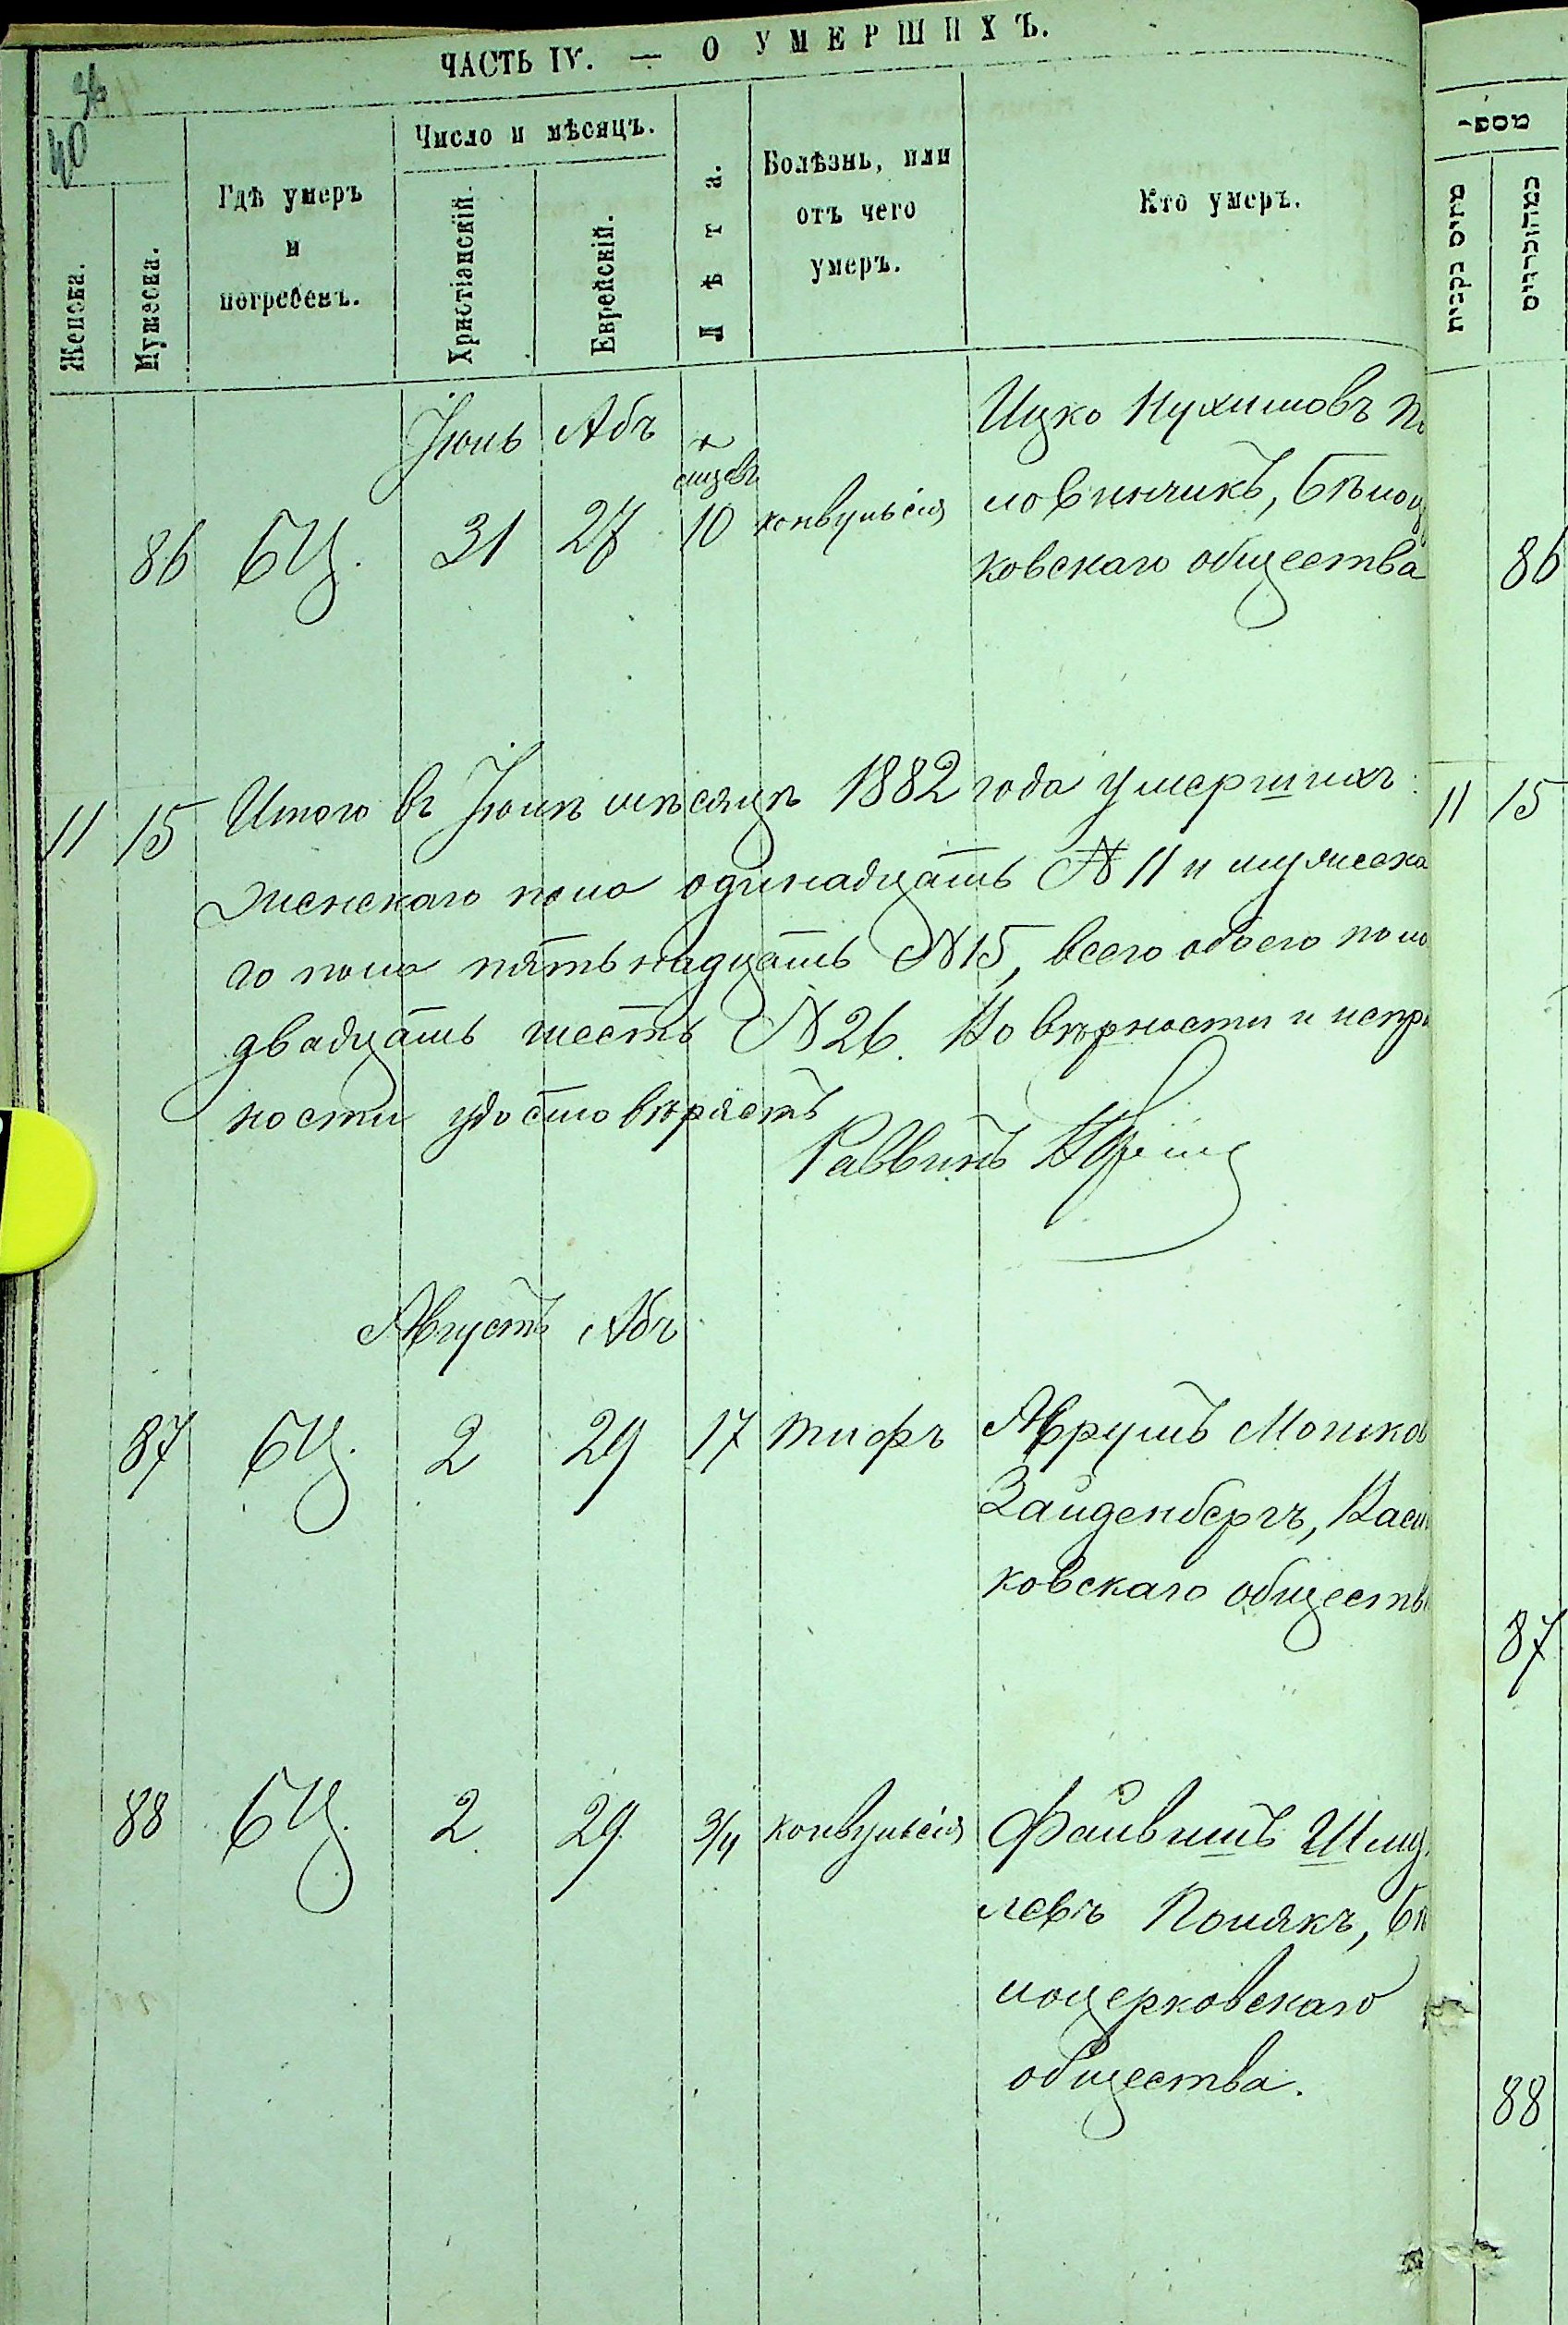 ЧАСТЬ IV. — О УМЕРШИХЪ.
36
40
Женска.
Мужеска.
Гдѣ умеръ
и
погребенъ.
Число и мѣсяцъ.
Христіанскій.
Еврейскій.
Лѣта.
Болѣзнь, или
отъ чего
умеръ.
Кто умеръ.
מספר
Іюль Абъ Ицко Нухимовъ По
мѣсяц. ловинчикъ, Бѣлоц
86 БЦ. 31 27 10 конвульсія
ковскаго общества 86
11 15 Итого въ Іюлѣ мѣсяцѣ 1882 года умершихъ: 11 15
женскаго пола одинадцать № 11 и мужеска
го пола пятьнадцать № 15, всего обоего пола
двадцать шесть № 26. Но вѣрности и испра
ности удостовѣряетъ
Раввинъ
Августъ Абъ
87 БЦ. 2 29 17 тифъ Аврумъ Мошков
Зайденбергъ, Васил
ковскаго обществ
87
88 БЦ. 2 29 3/4 конвульсія Файвишъ Шму
левъ Полякъ, Бѣ
лоцерковскаго
общества.
88